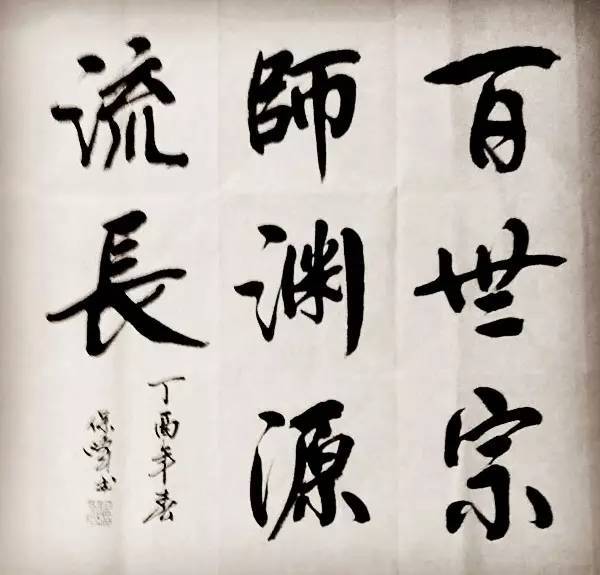 百世宗
師渊源
流長
丁酉年春
保